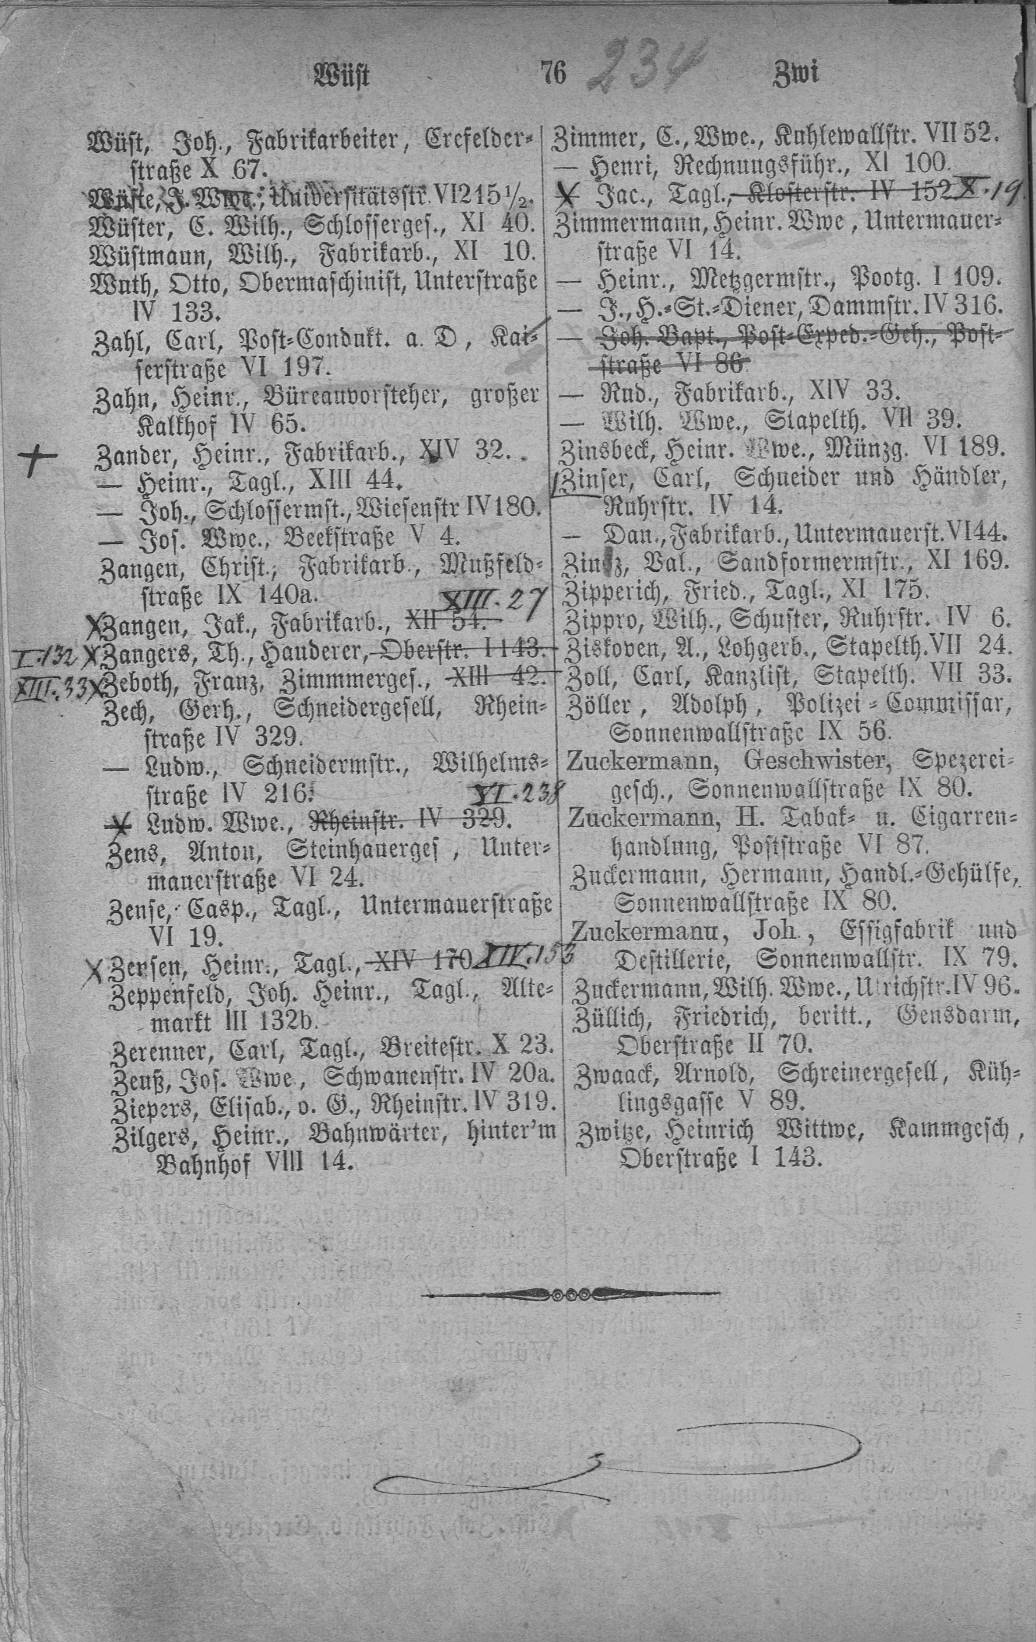 Wüst 76 234 Zwi
Wüst, Joh., Fabrikarbeiter, Crefelder-
straße X 67.
Wüste, J. Wwe., Universitätsstr. VI 215 1/2.
Wüster, C. Wilh., Schlosserges., XI 40.
Wüstmann, Wilh., Fabrikarb., XI 10.
Wuth, Otto, Obermaschinist, Unterstraße
IV 133.
Zahl, Carl, Post-Condukt. a. D, Kai-
serstraße VI 197.
Zahn, Heinr., Büreauvorsteher, großer
Kalkhof IV 65.
+ Zander, Heinr., Fabrikarb., XIV 32.
— Heinr., Tagl., XIII 44.
— Joh., Schlossermst., Wiesenstr IV 180.
— Jos. Wwe., Beekstraße V 4.
Zangen, Christ., Fabrikarb., Mußfeld-
straße IX 140a.
XIII. 27
X Zangen, Jak., Fabrikarb., XII 54.
I. 132 X Zangers, Th., Hauderer, Oberstr. I 143.
XIII. 33 X Zeboth, Franz, Zimmmerges., XIII 42.
Zech, Gerh., Schneidergesell, Rhein-
straße IV 329.
— Ludw., Schneidermstr., Wilhelms-
straße IV 216.
XI. 238
X Ludw. Wwe., Rheinstr. IV 329.
Zens, Anton, Steinhauerges, Unter-
mauerstraße VI 24.
Zense, Casp., Tagl., Untermauerstraße
VI 19.
X Zensen, Heinr., Tagl., XIV 170 XIV. 153
Zeppenfeld, Joh. Heinr., Tagl., Alte-
markt III 132b.
Zerenner, Carl, Tagl., Breitestr. X 23.
Zeuß, Jos. Wwe, Schwanenstr. IV 20a.
Ziepers, Elisab., o. G., Rheinstr. IV 319.
Zilgers, Heinr., Bahnwärter, hinter'm
Bahnhof VIII 14.
Zimmer, C., Wwe., Kuhlewallstr. VII 52.
— Henri, Rechnungsführ., XI 100.
X Jac., Tagl., Klosterstr. IV 152 X. 19
Zimmermann, Heinr. Wwe, Untermauer-
straße VI 14.
— Heinr., Metzgermstr., Pootg. I 109.
— J., H.-St.-Diener, Dammstr. IV 316.
— Joh. Bapt., Post-Exped.-Geh., Post-
straße VI 86
— Rud., Fabrikarb., XIV 33.
— Wilh. Wwe., Stapelth. VII 39.
Zinsbeck, Heinr. Wwe., Münzg. VI 189.
Zinser, Carl, Schneider und Händler,
Ruhrstr. IV 14.
— Dan., Fabrikarb., Untermauerst. VI 44.
Val., Sandformermstr., XI 169.
Zipperich, Fried., Tagl., XI 175.
Zippro, Wilh., Schuster, Ruhrstr. IV 6.
Ziskoven, A., Lohgerb., Stapelth. VII 24.
Zoll, Carl, Kanzlist, Stapelth. VII 33.
Zöller, Adolph, Polizei-Commissar,
Sonnenwallstraße IX 56.
Zuckermann, Geschwister, Spezerei-
gesch., Sonnenwallstraße IX 80.
Zuckermann, H. Tabak- u. Cigarren-
handlung, Poststraße VI 87.
Zuckermann, Hermann, Handl.-Gehülfe,
Sonnenwallstraße IX 80.
Zuckermann, Joh., Essigfabrik und
Destillerie, Sonnenwallstr. IX 79.
Zuckermann, Wilh. Wwe., Ulrichstr. IV 96.
Züllich, Friedrich, beritt., Gensdarm,
Oberstraße II 70.
Zwaack, Arnold, Schreinergesell, Küh-
lingsgasse V 89.
Zwitze, Heinrich Wittwe, Kammgesch,
Oberstraße I 143.